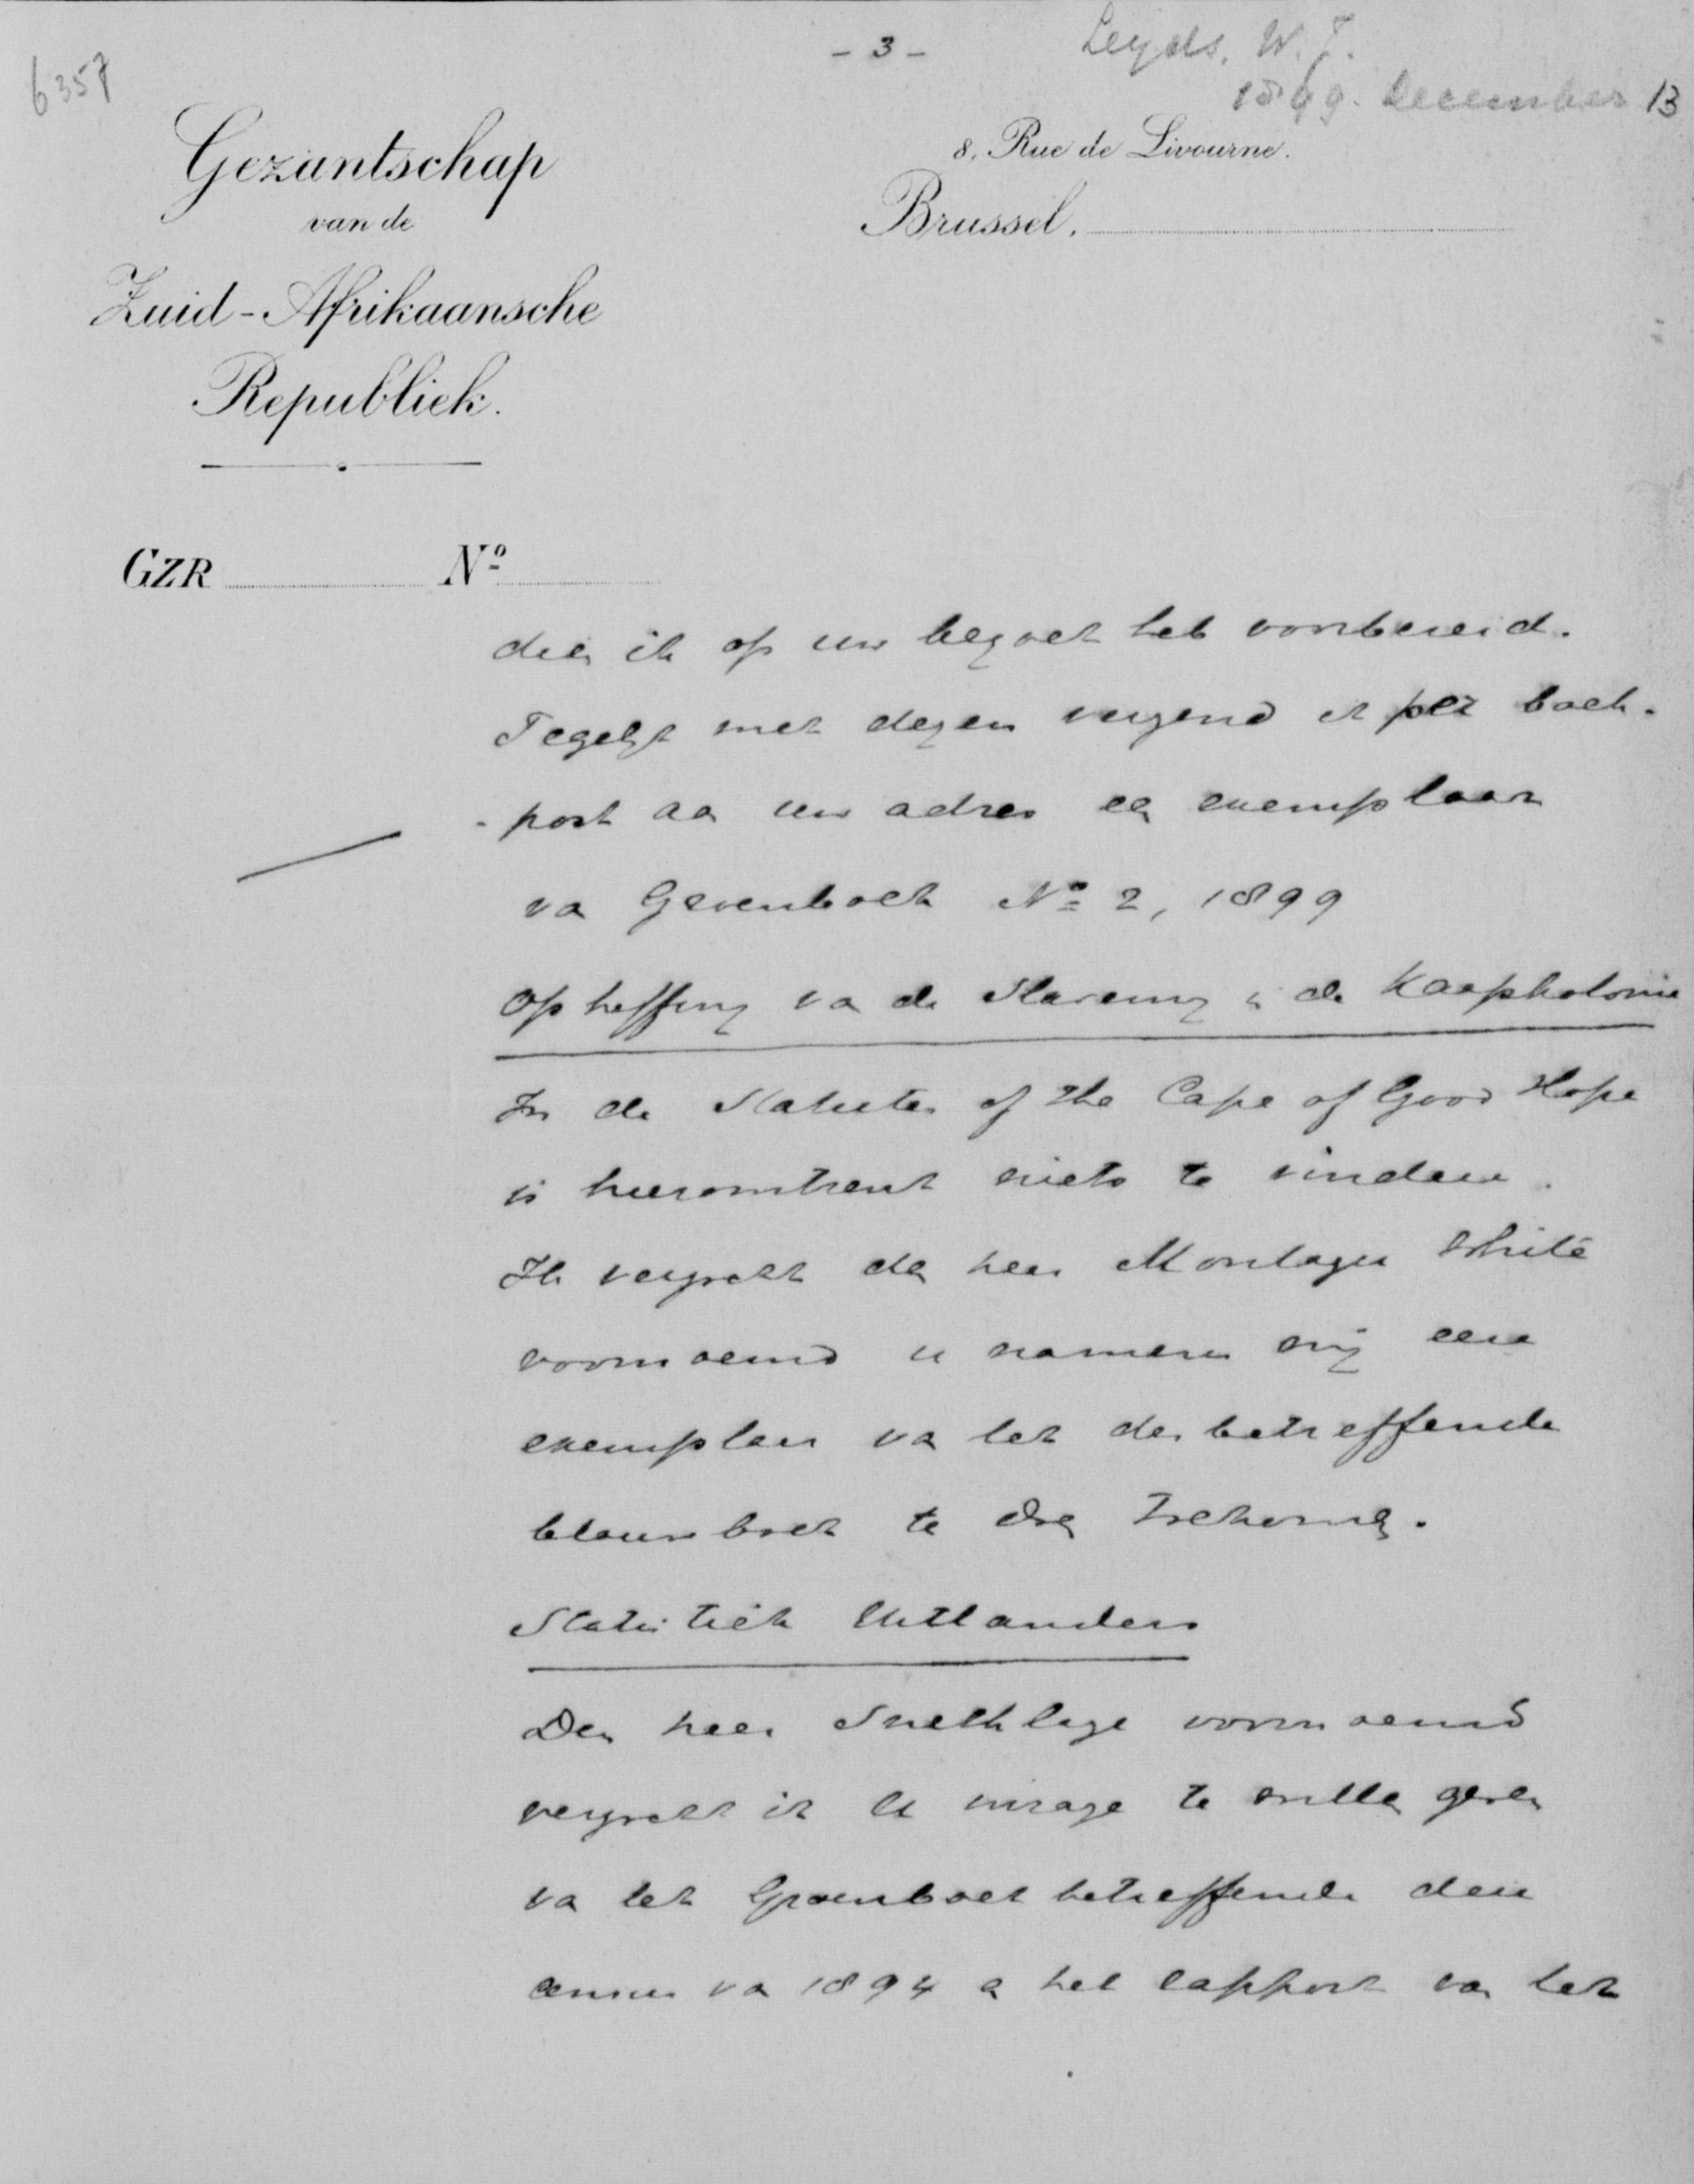 - 3 -
Leyds, W. J.
1899. December 13
6357
Gezantschap
van de
Zuid-Afrikaansche
Republiek.
8, Rue de Livourne.
Brussel.
GZR Nº
dien ik op uw verzoek heb voorbereid.
Tegelijk met dezen verzend ik per boek-
-post aan uw adres een exemplaar
van Groenboek Nº 2, 1899
Opheffing van de Slavernij in de Kaapkolonie
In de Statutes of the Cape of Good Hope
is hieromtrent niets te vinden.
Ik verzoek den heer Montagu White
voornoemd u namens mij een
exemplaar van het desbetreffende
blauwboek te doen toekomen.
Statistiek Uitlanders
Den heer Snethlage voornoemd
verzoek ik U inzage te willen geven
van het Groenboek betreffende den
census van 1894 en het rapport van het